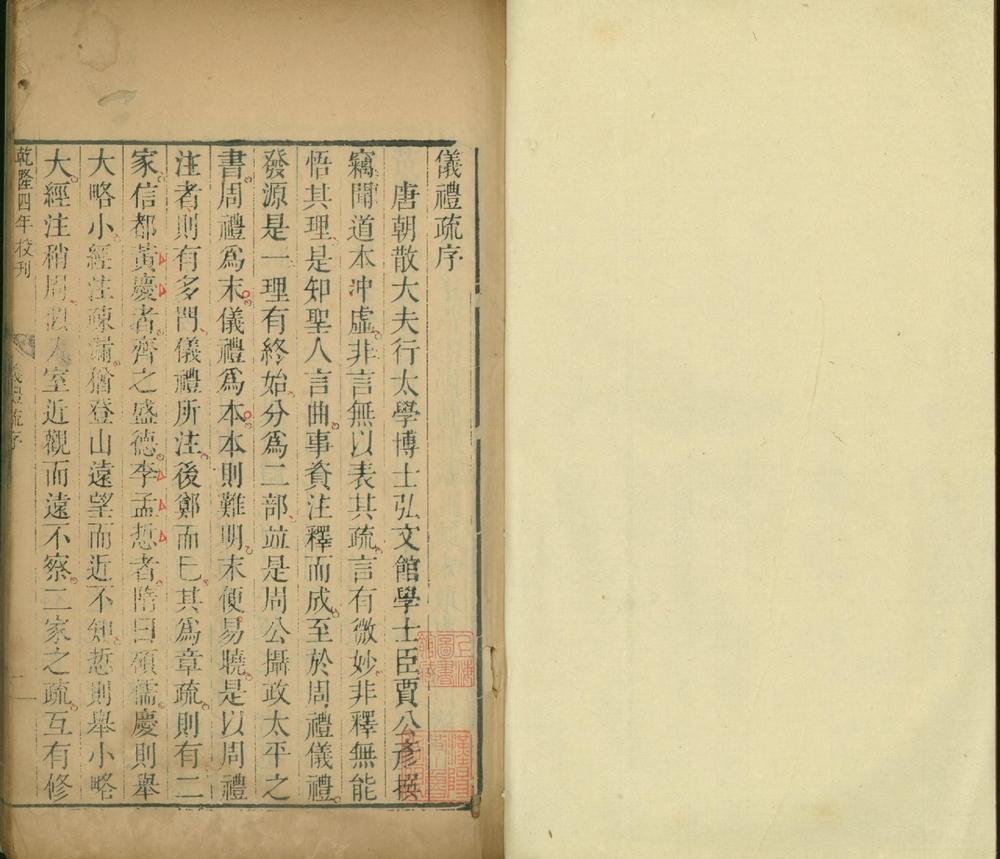 儀禮疏序
唐朝散大夫行太學博士弘文館學士臣賈公彥撰
竊聞道本冲虛非言無以表其疏言有微妙非釋無能
悟其理是知聖人言曲事資注釋而成至於周禮儀禮
發源是一理有終始分爲二部竝是周公攝政太平之
書周禮爲末儀禮爲本本則難明末便易曉是以周禮
注者則有多門儀禮所注後鄭而已其爲章疏則有二
家信都黃慶者齊之盛德李孟悊者隋曰碩儒慶則舉
大略小經注疎漏猶登山遠望而近不知悊則舉小略
大經注稍周似入室近觀而遠不察二家之疏互有修
乾隆四年校刊
儀禮疏序